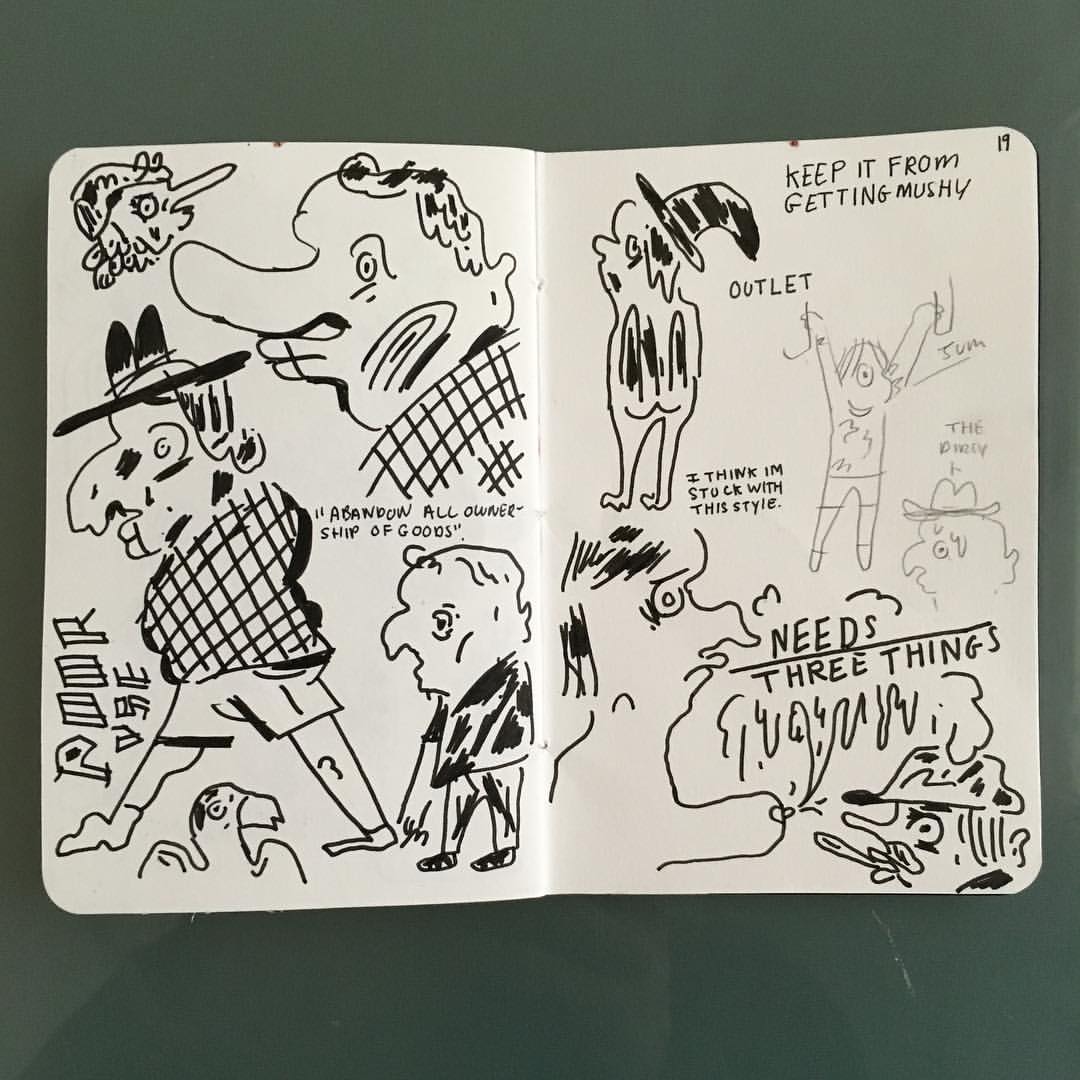 "ABANDON ALL OWNER-
SHIP OF GOODS".
19
KEEP IT FROM
GETTING MUSHY
OUTLET
I THINK IM
STUCK WITH
THIS STYLE.
THE
NEEDS
THREE THINGS